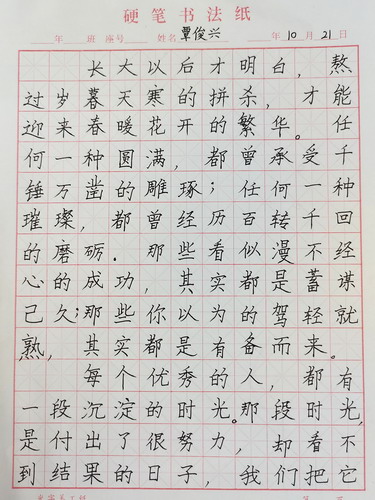 硬笔书法纸
年 班 座号 姓名 覃俊兴 年 10 月 21 日
长大以后才明白，熬
过岁暮天寒的拼杀，才能
迎来春暖花开的繁华。任
何一种圆满，都曾承受千
锤万凿的雕琢；任何一种
璀璨，都曾经历百转千回
的磨砺．那些看似漫不经
心的成功，其实都是蓄谋
已久；那些你以为的驾轻就
熟，其实都是有备而来。
每个优秀的人，都有
一段沉淀的时光。那段时光，
是付出了很努力，却看不
到结果的日子，我们把它